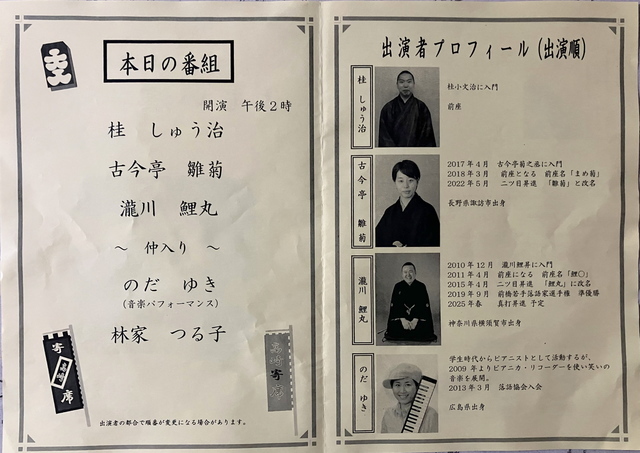 本日の番組
開演 午後2時
桂 しゅう治
古今亭 雛菊
瀧川 鯉丸
～ 仲入り ～
のだ ゆき
(音楽パフォーマンス)
林家 つる子
寄
席
寄
席
出演者の都合で順番が変更になる場合があります。
出演者プロフィール(出演順)
桂 しゅう治
桂小文治に入門
前座
古今亭 雛菊
2017年4月 古今亭菊之丞に入門
2018年3月 前座となる 前座名「まめ菊」
2022年5月 二ツ目昇進 「雛菊」と改名
長野県諏訪市出身
瀧川 鯉丸
2010年12月 瀧川鯉昇に入門
2011年4月 前座になる 前座名「鯉○」
2015年4月 二ツ目昇進 「鯉丸」に改名
2019年9月 前橋若手落語家選手権 準優勝
2025年春 真打昇進 予定
神奈川県横須賀市出身
のだ ゆき
学生時代からピアニストとして活動するが、
2009年よりピアニカ・リコーダーを使い笑いの
音楽を展開。
2013年3月 落語協会入会
広島県出身